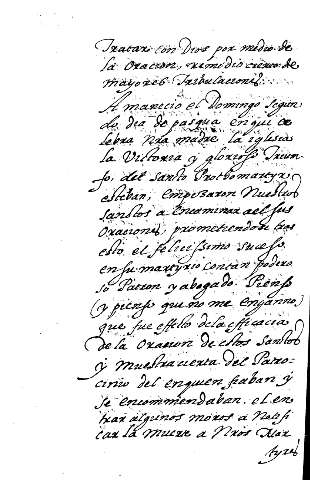 Tratar con Dios por medio de
la Oracion, remedio cierto de
mayores Tribulaciones.
Amanecio el Domingo segun
do dia de pasqua en que ce
lebra nra madre la Iglesia
la Victoria y glorioso Trium
fo, del Santo Prothomartyr,
esteban, empezaron Nuestros
Sanctos a Encaminar a el sus
Oraciones, prometiendose tras
esto el felicissimo sucesso
en su martyrio con tan podero
so Patron y abogado. Pienso
(y pienso que no me enganno)
que fue effeto de la efficacia
de la Oracion de estos Sanctos
y muestra cierta del Patro
cinio del en quien fiaban y
se encommendaban. el en
trar algunos moros a Notifi
car la muerte a Nros Mar
tyres